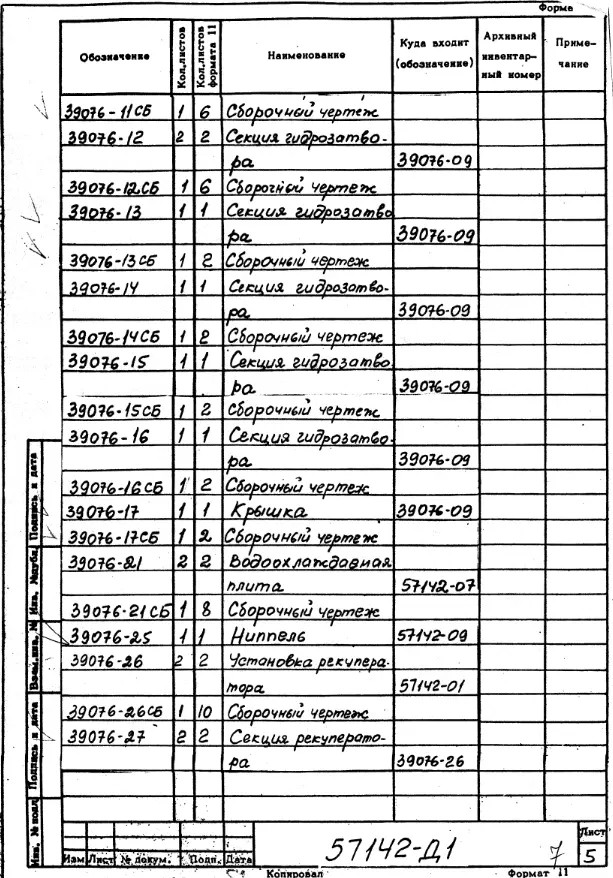 Форма
Обозначение Кол.листов Кол.листов формата 11 Наименование Куда входит (обозначение) Архивный инвентарный номер Примечание
39076-11СБ 1 6 Сборочный чертеж
39076-12 2 2 Секция гидрозатво-
ра 39076-09
39076-12СБ 1 6 Сборочный чертеж
39076-13 1 1 Секция гидрозатво
ра 39076-09
39076-13СБ 1 2 Сборочный чертеж
39076-14 1 1 Секция гидрозатво-
ра 39076-09
39076-14СБ 1 2 Сборочный чертеж
39076-15 1 1 Секция гидрозатво
ра 39076-09
39076-15СБ 1 2 Сборочный чертеж
39076-16 1 1 Секция гидрозатво-
ра 39076-09
39076-16СБ 1 2 Сборочный чертеж
39076-17 1 1 Крышка 39076-09
39076-17СБ 1 2 Сборочный чертеж
39076-21 2 2 Водоохлаждаемая
плита 57142-07
39076-21СБ 1 8 Сборочный чертеж
39076-25 1 1 Ниппель 57142-09
39076-26 2 2 Установка рекупера-
тора 57142-01
39076-26СБ 1 10 Сборочный чертеж
39076-27 2 2 Секция рекуперато-
ра 39076-26
Подпись и дата
Инв. № дубл.
Взам.инв. №
Подпись и дата
Инв. № подл
Изм Лист № докум. Подп. Дата
57142-Д1
7
Лист
5
Копировал Формат 11